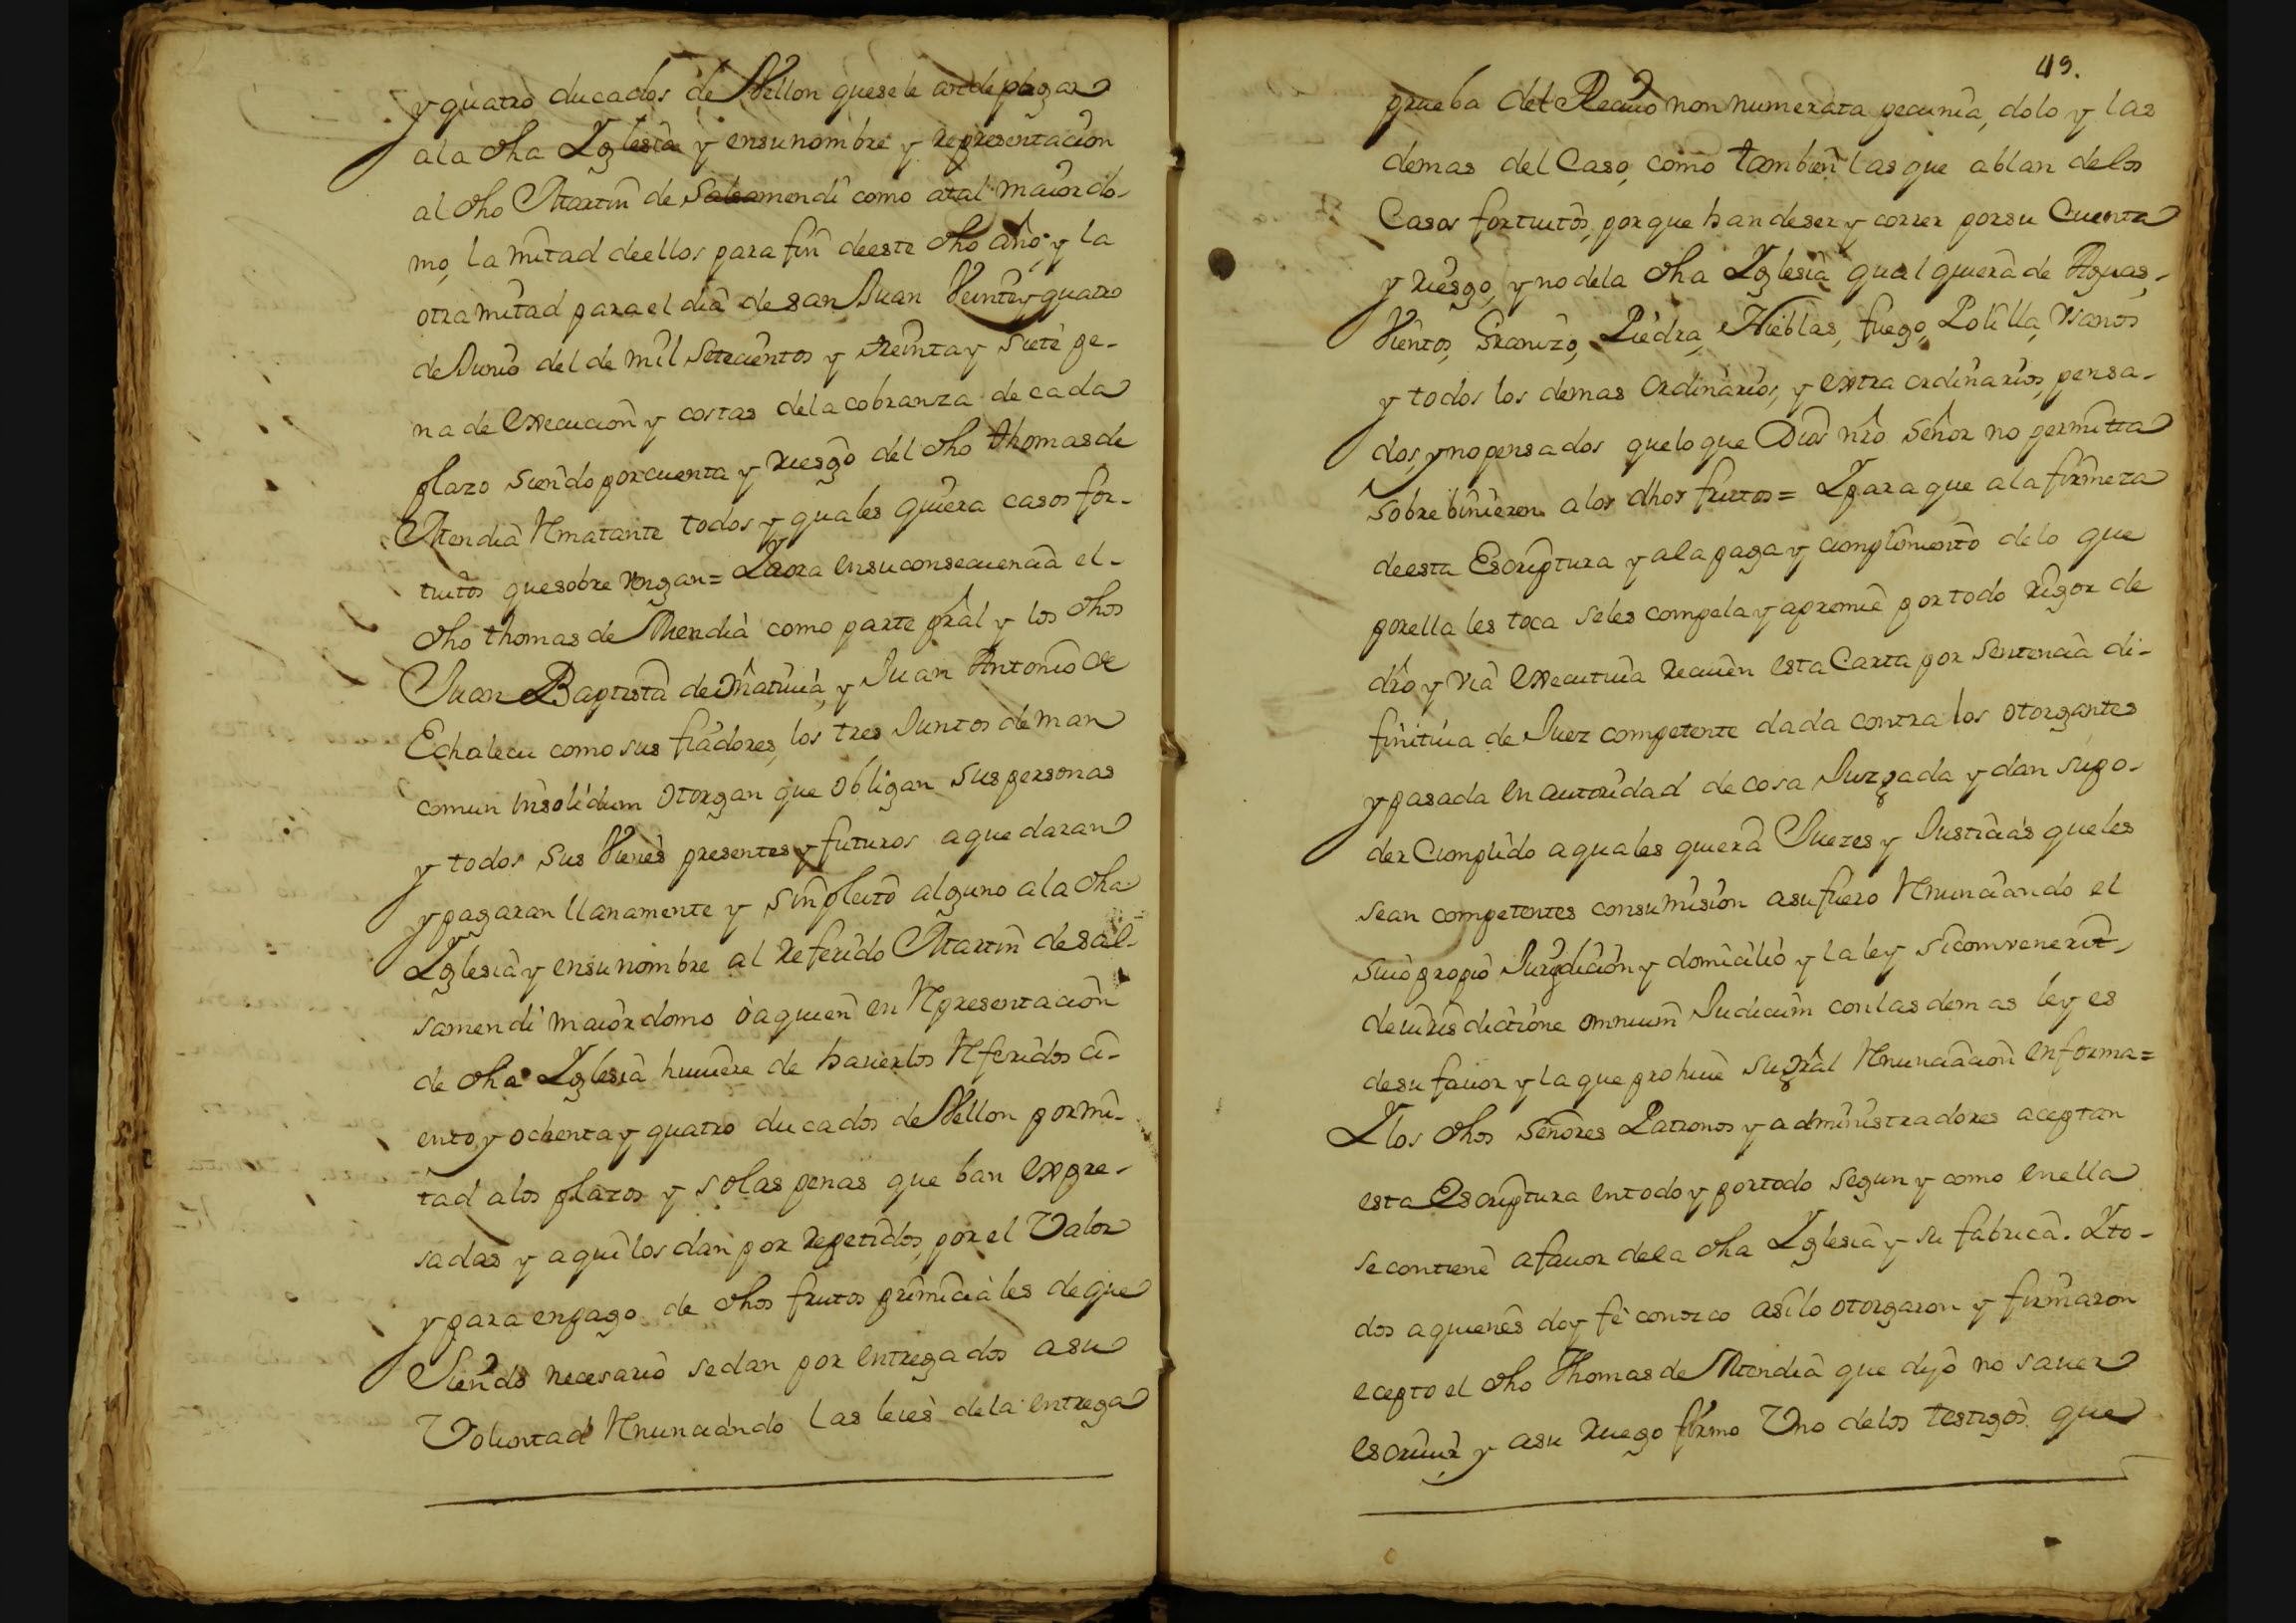 y quatro ducados de Vellon que se le an de pagar
a la dha Iglesia y en su nombre y representacion
al dho Martin de Salsamendi como atal maiordo-
mo, la mitad de ellos para fin de este dho año, y la
otra mitad para el dia de san Juan Veinte y quatro
de Junio del de mil Setecientos y treinta y siete pe-
na de execucion y costas de la cobranza de cada
plazo siendo por cuenta y riesgo del dho thomas de
Mendia Rmatante todos y quales quiera casos for-
tuitos que sobre vengan = Y aora en su consecuencia el-
dho thomas de Mendia como parte pral y los dhos
Juan Baptista de Y Juan Antonio de
Echalecu como sus fiadores, los tres Juntos de man
comun insolidum otorgan que obligan sus personas
y todos sus Vienes presentes y futuros a que daran
y pagaran llanamente y sin pleito alguno a la dha
Iglesia y en su nombre al referido Martin de sal-
samendi maiordomo ò a quien en Rpresentacion
de dha Iglesia huuiere de hauerlos Rferidos ci-
ento y ochenta y quatro ducados de Vellon por mi-
tad a los plazos y so las penas que ban expre-
sadas y aqui los dan por repetidos, por el Valor
y para en pago de dhos frutos primiciales de que
Siendo necesario se dan por entregados a su
Voluntad Rnunciando las leies de la entrega
49.
prueba del Reciuo non numerata pecunia, dolo y las
demas del Caso, como tambien las que ablan de los
Casos fortuitos, porque han de ser y correr por su Cuenta
y riesgo, y no de la dha Iglesia qualquiera de Aguas,
Vientos, Granizo, Piedra, Nieblas, fuego, Polilla, Vsanos
y todos los demas ordinarios, y extra ordinarios, pensa-
dos, y no pensados que lo que Dios nro Señor no permitta
sobre binieren a los dhos frutos = Y para que a la firmeza
de esta Escriptura y a la paga y cumplimiento de lo que
por ella les toca se les compela y apremie por todo rigor de
dro y via executiua reciuen esta Carta por sentencia di-
finitiua de Juez competente dada contra los otorgantes
y pasada en autoridad de cosa Juzgada y dan su po-
der Cumplido a quales quiera Juezes y Justicias que les
sean competentes con sumision a su fuero Rnunciando el
suio propio Jurisdicion y domicilio y la ley si combenerit-
de iurisdictione omnium Judicum con las demas leyes
de su fauor y la que prohiue su gral Rnunciacion en forma =
Y los dhos Señores Patronos y administradores aceptan
esta Escriptura en todo y por todo segun y como en ella
se contiene a fauor de la dha Iglesia y su fabrica. Y to-
dos a quienes doy fè conozco asi lo otorgaron y firmaron
ecepto el dho Thomas de Mendia que dijo no sauer
escriuir y a su ruego firmo Vno de los testigos que